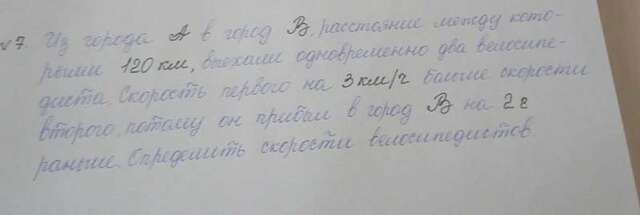 √7. Из города A в город B, расстояние между кото-
рыми 120 км, выехали одновременно два велосипе-
диста. Скорость первого на 3 км/г больше скорости
второго, потому он прибыл в город B на 2 г
раньше. Определить скорости велосипедистов.